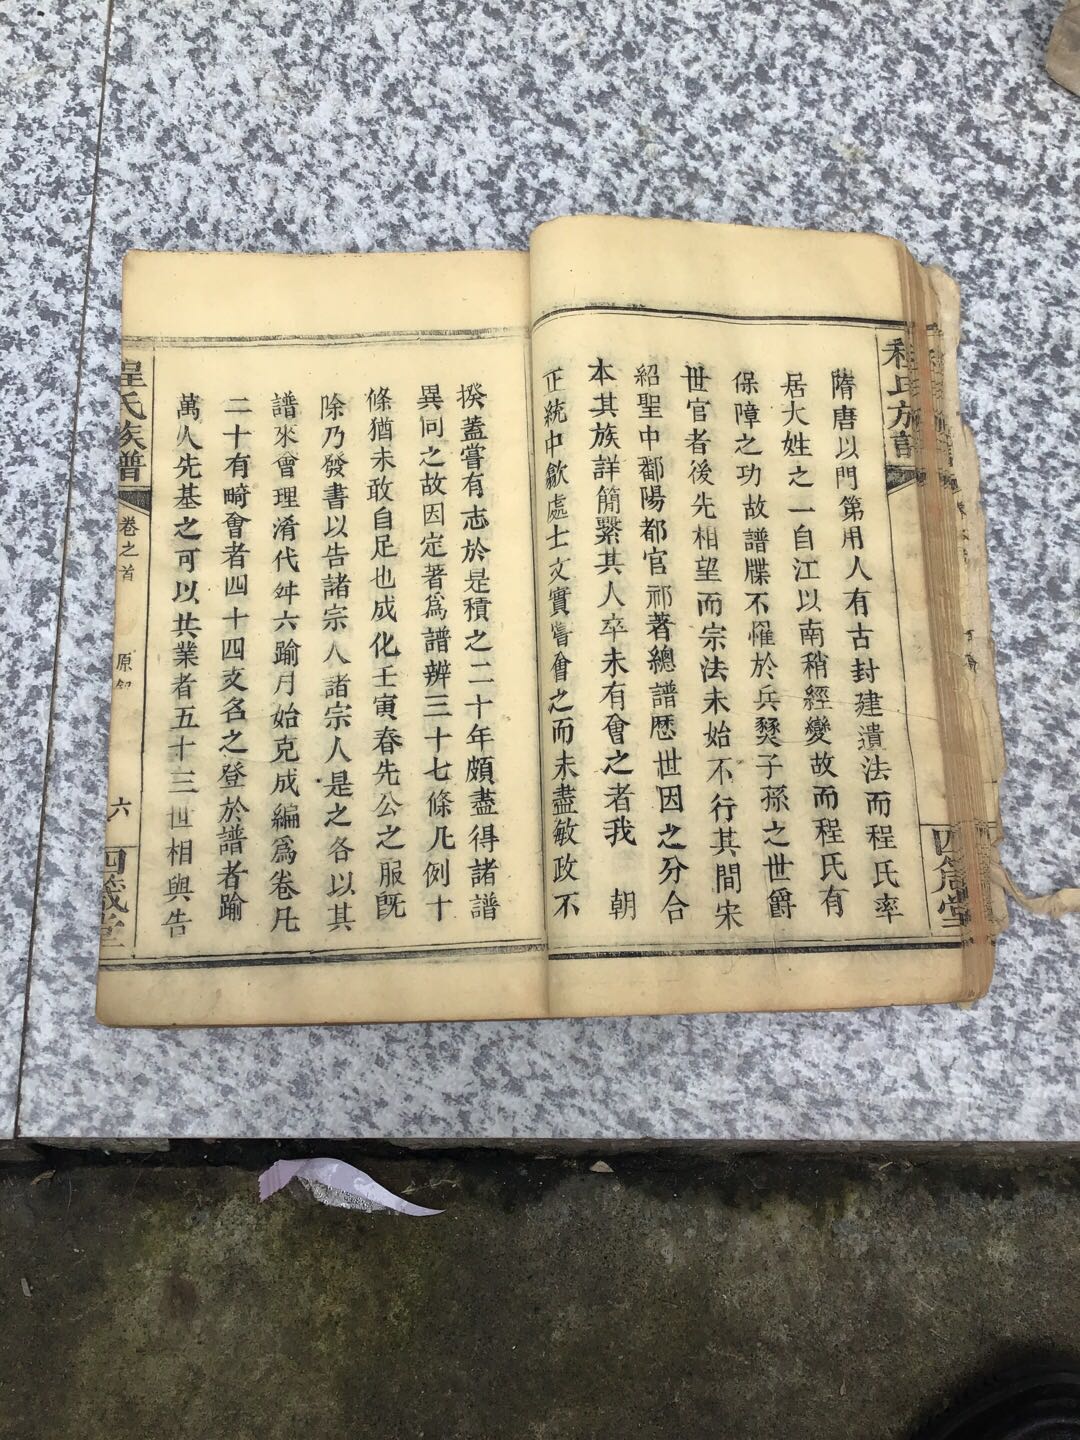 程氏族譜
隋唐以門第用人有古封建遺法而程氏率
居大姓之一自江以南稍經變故而程氏有
保障之功故譜牒不罹於兵燹子孫之世爵
世官者後先相望而宗法未始不行其間宋
紹聖中鄱陽都官祁著總譜歷世因之分合
本其族詳簡繫其人卒未有會之者我　朝
正統中歙處士文實嘗會之而未盡敏政不
揆蓋嘗有志於是積之二十年頗盡得諸譜
異同之故因定著爲譜辨三十七條凡例十
條猶未敢自足也成化壬寅春先公之服旣
除乃發書以告諸宗人諸宗人是之各以其
譜來會理淆代舛六踰月始克成編爲卷凡
二十有畸會者四十四支名之登於譜者踰
萬人先基之可以共業者五十三世相與告
程氏族譜
卷之首
原
六